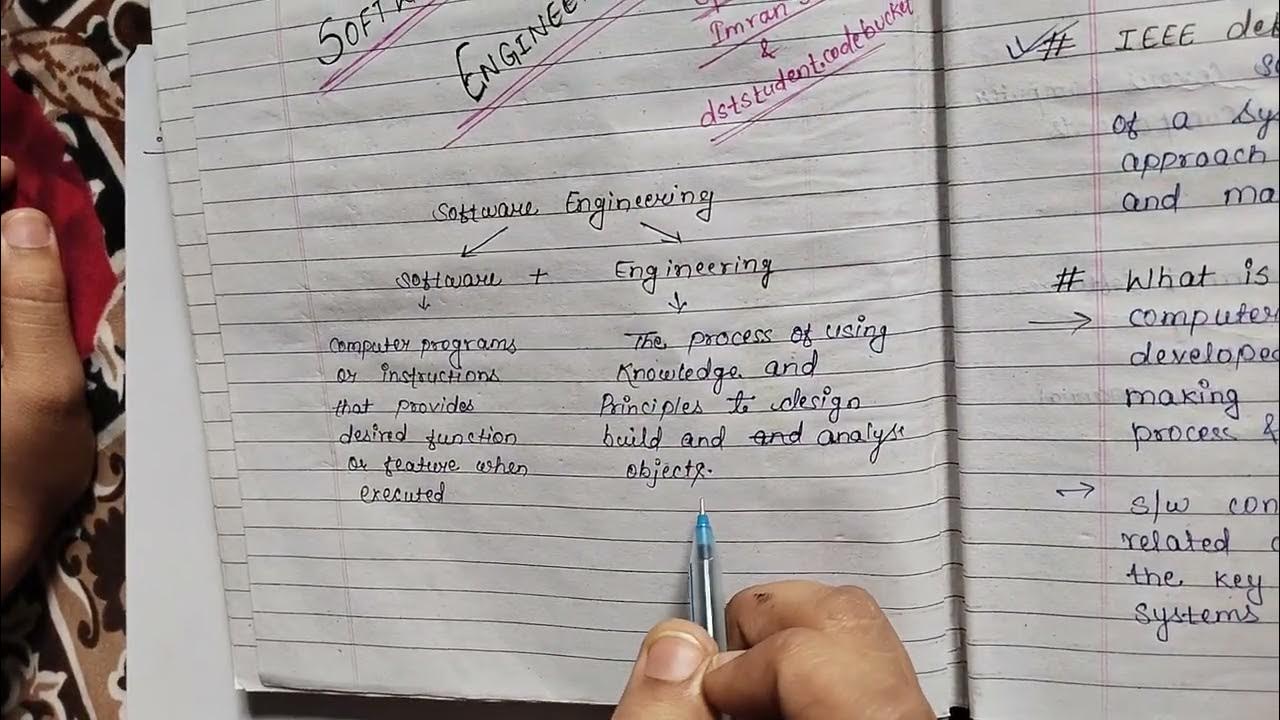 ENGINEE
Imran
&
dststudent.codebucket
Software Engineering
Software + Engineering
Computer programs
or instructions
that provides
desired function
or feature when
executed
The process of using
Knowledge and
Principles to design
build and and analyse
objects.
# IEEE
of a
approach
and
# What is
computer
developed
making
process &
S/w
related
the key
systems